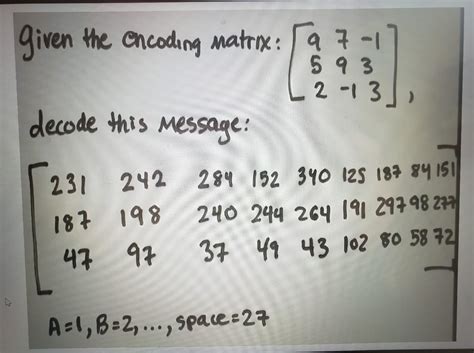 given the encoding matrix: [9 7 -1
5 9 3
2 -1 3],
decode this message:
[231 242 284 152 340 125 187 84 151
187 198 240 244 264 191 297 98 277
47 97 37 49 43 102 80 58 72]
A=1, B=2, ..., space=27